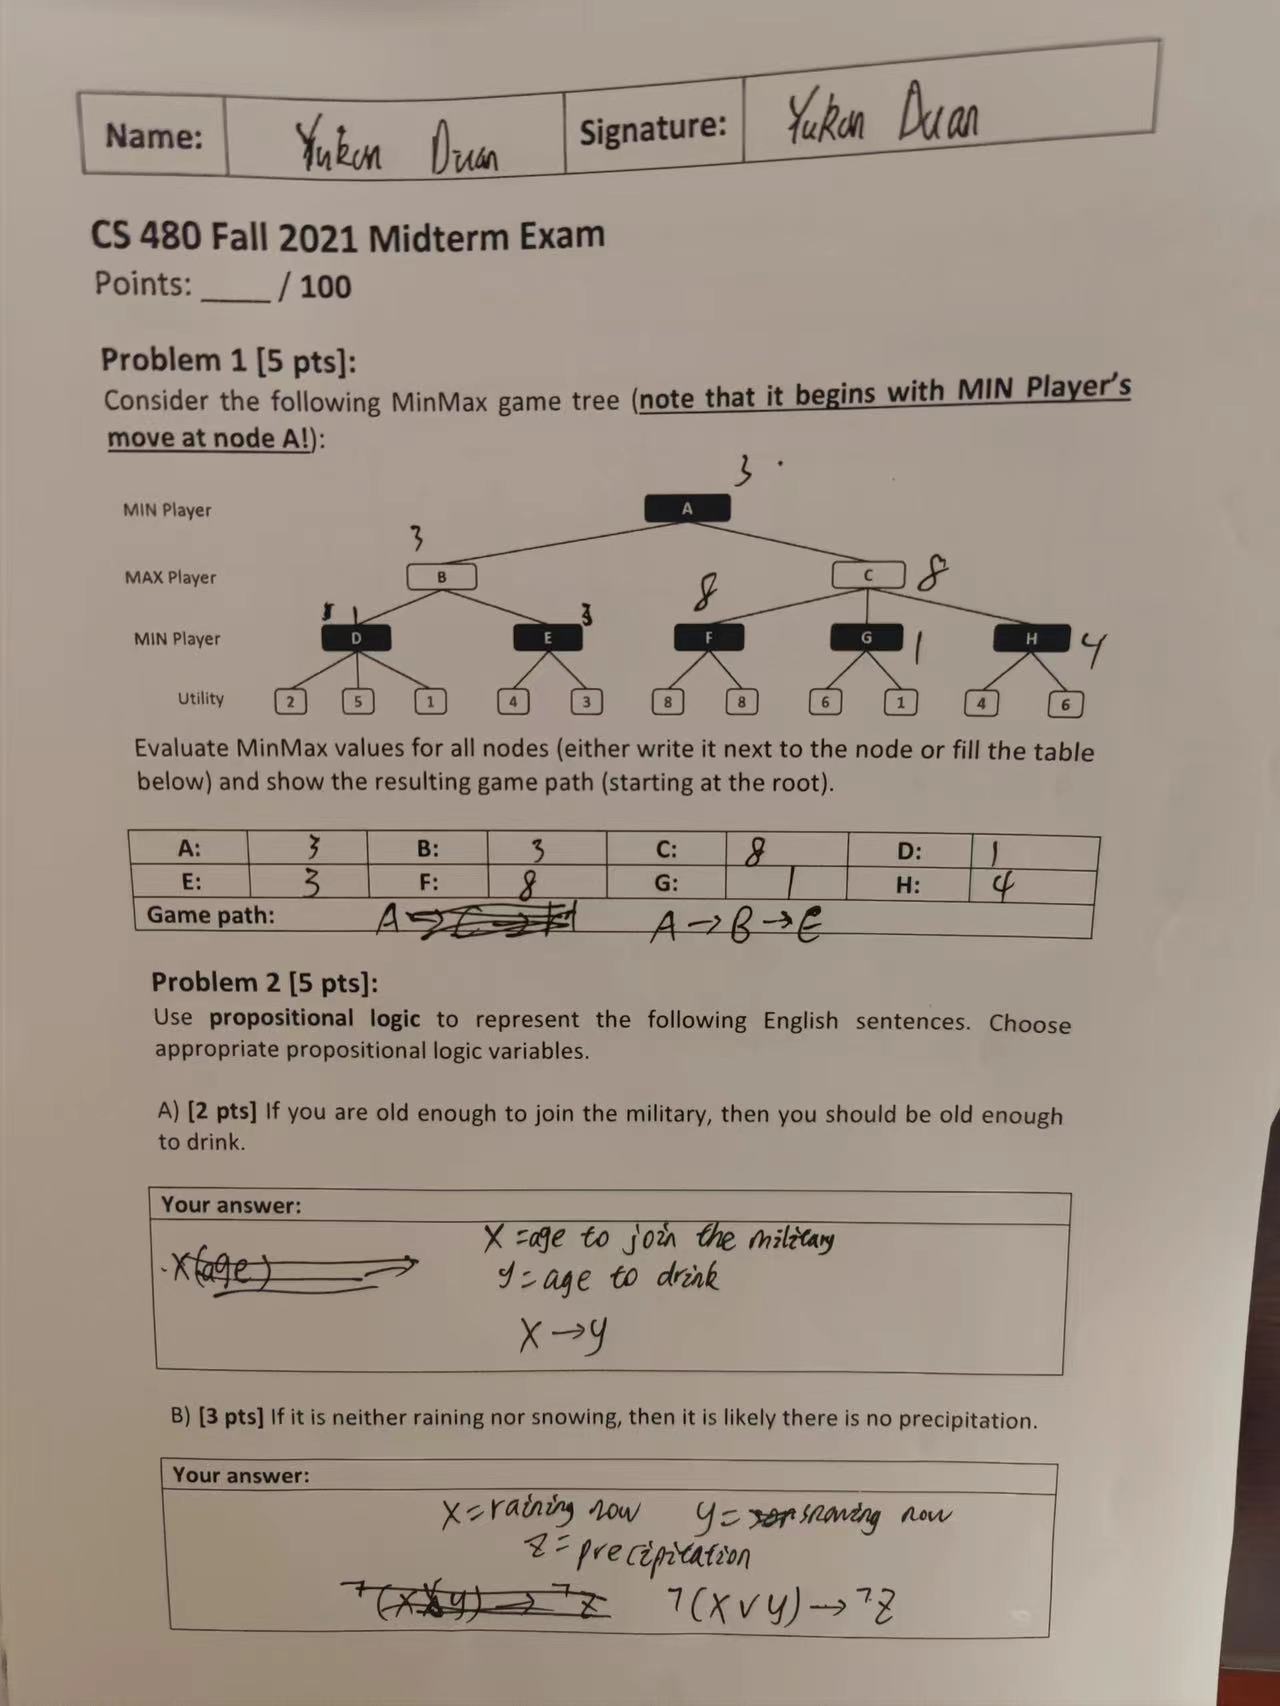 Name: Yukon Duan Signature: Yukon Duan
CS 480 Fall 2021 Midterm Exam
Points: ____ / 100
Problem 1 [5 pts]:
Consider the following MinMax game tree (note that it begins with MIN Player's
move at node A!):
3
MIN Player A
3
MAX Player B C 8
8
1 3
MIN Player D E F G 1 H 4
Utility 2 5 1 4 3 8 8 6 1 4 6
Evaluate MinMax values for all nodes (either write it next to the node or fill the table
below) and show the resulting game path (starting at the root).
A: 3 B: 3 C: 8 D: 1
E: 3 F: 8 G: 1 H: 4
Game path: A→C→H A→B→E
Problem 2 [5 pts]:
Use propositional logic to represent the following English sentences. Choose
appropriate propositional logic variables.
A) [2 pts] If you are old enough to join the military, then you should be old enough
to drink.
Your answer:
X = age to join the military
X(age) →
y = age to drink
X → y
B) [3 pts] If it is neither raining nor snowing, then it is likely there is no precipitation.
Your answer:
X = raining now y = snowing now
Z = precipitation
¬(X∨y) → ¬Z ¬(X∨y) → ¬Z